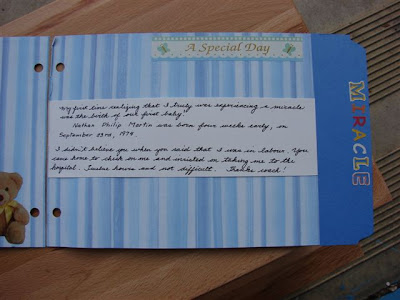 A Special Day
MIRACLE
My first time realizing that I truly was experiencing a miracle
was the birth of our first baby.
Nathan Philip Martin was born four weeks early, on
September 23rd, 1979.
I didn't believe you when you said that I was in labour. You
came home to check on me and insisted on taking me to the
hospital. Twelve hours and not difficult. Thanks coach!